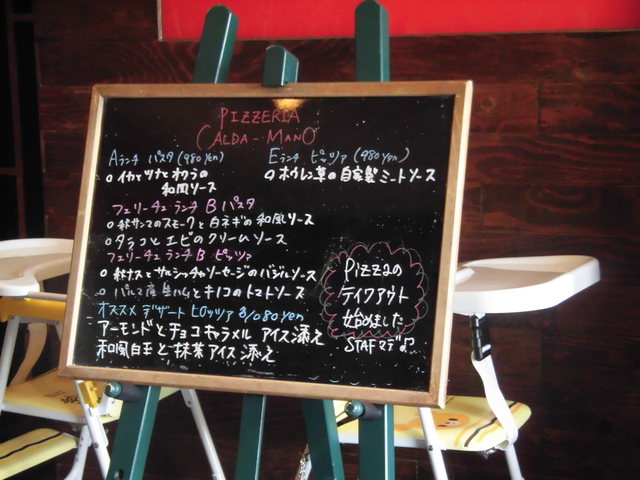 PIZZERIA
CALDA-MANO
Aランチ パスタ (980yen)
イカとツナとわかうの
和風ソース
Eランチ ピッツァ (980yen)
ホウレン草の自家製ミートソース
フェリーチェ ランチ B パスタ
秋サンマのスモークと白ネギの和風ソース
タラコとエビのクリームソース
フェリーチェ ランチ B ピッツァ
秋ナスとサルシッチャソーセージのバジルソース
パルマ産生ハムとキノコのトマトソース
オススメ デザート ピッツァ 3/080yen
アーモンドとチョコキャラメル アイス添え
和風白玉と抹茶アイス添え
Pizzaの
テイクアウト
始めました
STAFマデ♫